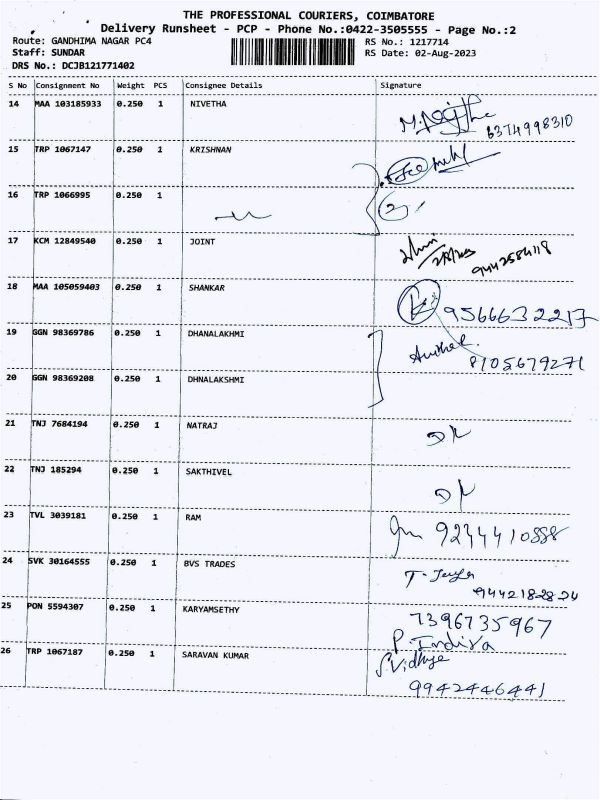 THE PROFESSIONAL COURIERS, COIMBATORE
Delivery Runsheet - PCP - Phone No.:0422-3505555 - Page No.:2
Route: GANDHIMA NAGAR PC4 RS No.: 1217714
Staff: SUNDAR RS Date: 02-Aug-2023
DRS No.: DCJB121771402
S No Consignment No Weight PCS Consignee Details Signature
14 MAA 103185933 0.250 1 NIVETHA
6374998310
15 TRP 1067147 0.250 1 KRISHNAN
16 TRP 1066995 0.250 1
2
17 KCM 12849540 0.250 1 JOINT
9442584118
18 MAA 105059403 0.250 1 SHANKAR
9566632217
19 GGN 98369786 0.250 1 DHANALAKHMI
8105679271
20 GGN 98369208 0.250 1 DHNALAKSHMI
21 TNJ 7684194 0.250 1 NATRAJ
22 TNJ 185294 0.250 1 SAKTHIVEL
23 TVL 3039181 0.250 1 RAM
9244410888
24 SVK 30164555 0.250 1 BVS TRADES
9442182824
25 PON 5594307 0.250 1 KARYAMSETHY
7396735967
P. Indira
26 TRP 1067187 0.250 1 SARAVAN KUMAR
S. Vidhya
9942446441